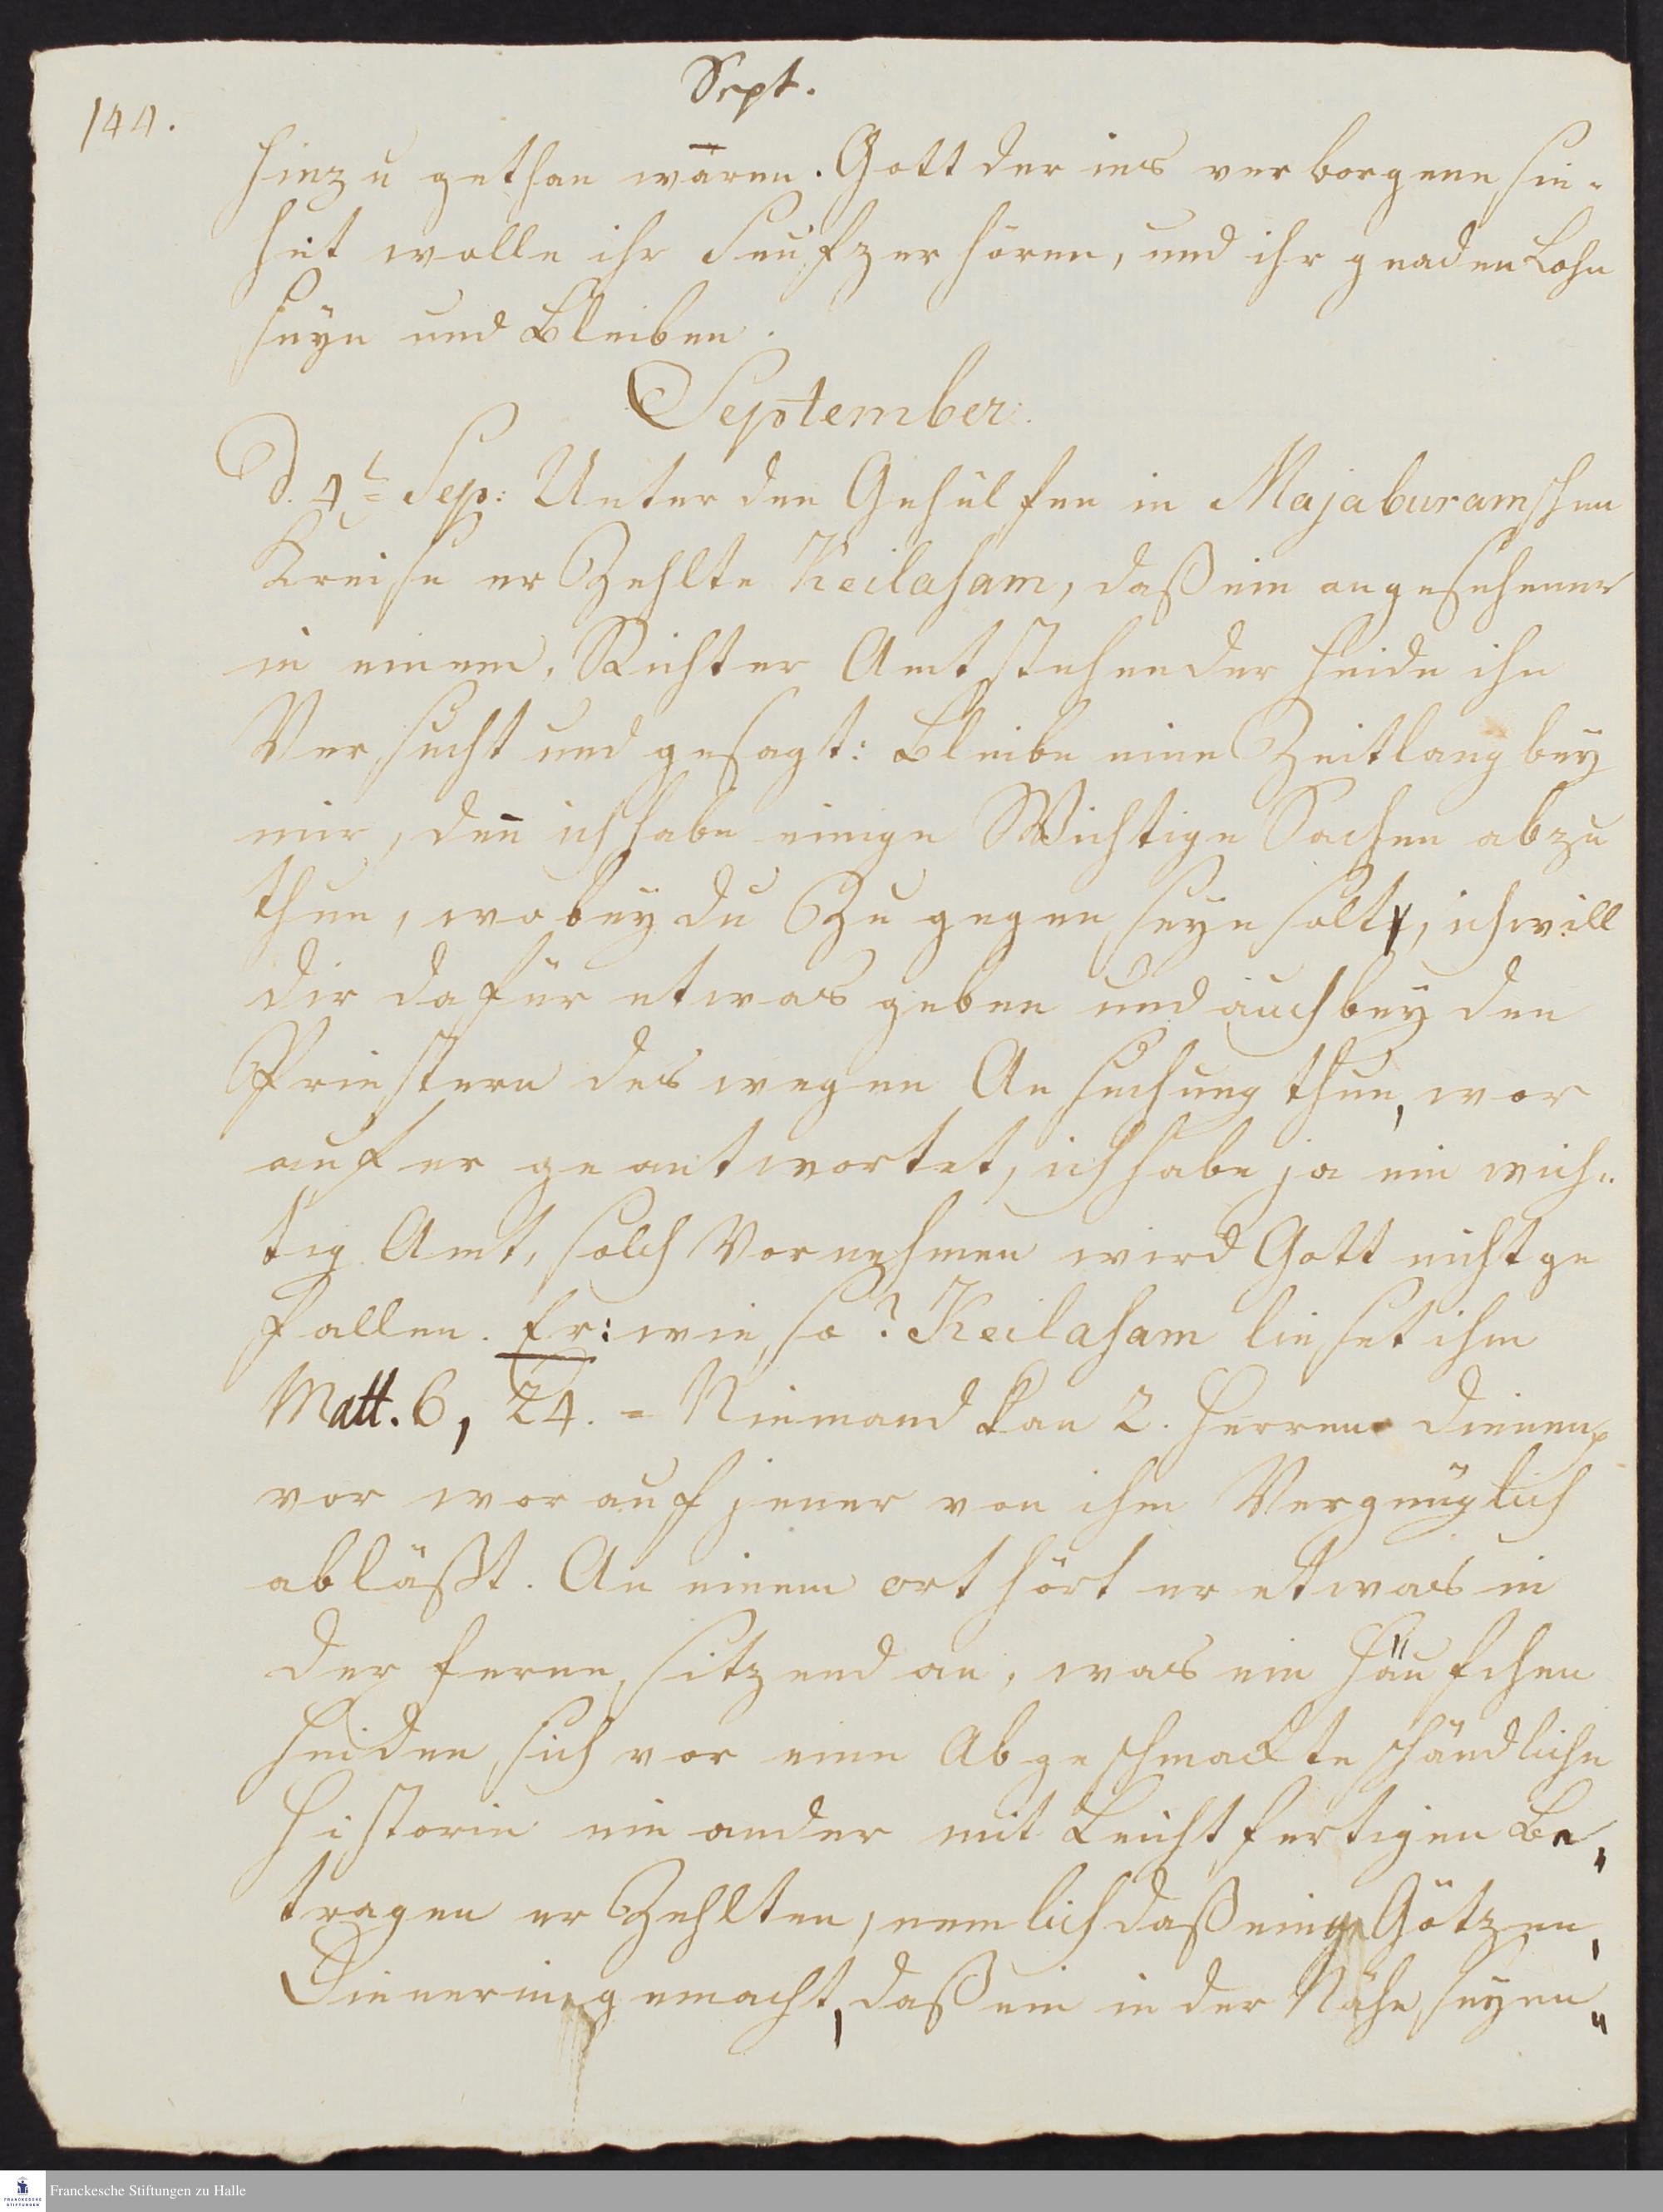 Sept.
144.
hinzu gethan wären. Gott der ins verborgene sie-
het wolle ihr Seufzer hören, und ihr gnaden Lohn
seyn und Bleiben.
September.
D. 4t Sep: Unter den Gehülfen in Majaburamschen
Kreise er Zehlte Keilasam, daß ein angesehener
in einem, Richter Amt stehender Heide ihn
Versucht und gesagt: Bleibe eine Zeitlang bey
mir, den̅ ich habe einige Wichtige Sachen abzu
thun, wobey du Zu gegen seyn solt, ich will
dir dafür etwas geben und auch bey den
Priestern des wegen Ansuchung thun, wor
auf er geantwortet, ich habe ja ein wich-
tig Amt, solch Vornehmen wird Gott nicht ge
fallen. Er: wie so? Keilasam lieset ihm
Matt. 6, 24. = Niemand kan 2. Herren dienen
vor worauf jener von ihm Vergnüglich
abläßt. An einem ort hört er etwas in
der ferne sitzend an, was ein Häufchen
Heiden sich vor eine Abgeschmackte schändliche
Historie ein ander mit Leichtfertigen Be,
tragen er Zehlten, nemlich daß eine Götzen,
Dienerin gemacht, daß ein in der Nähe seyen"
Franckesche Stiftungen zu Halle